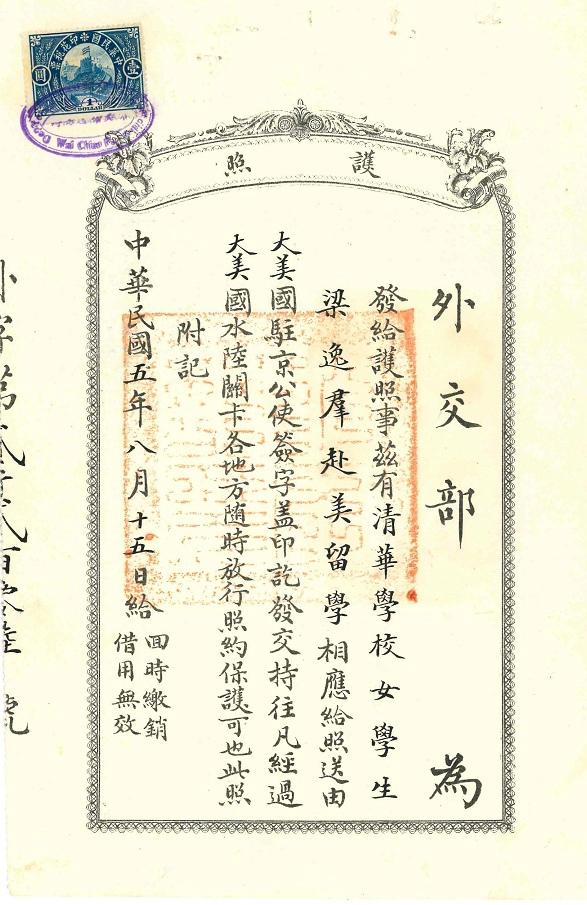 中華民國印花稅票
壹
圓
1
DOLLAR
Wai Chiao
護照
外交部為
發給護照事茲有清華學校女學生
梁逸羣赴美留學相應給照送由
大美國駐京公使簽字盖印訖發交持往凡經過
大美國水陸關卡各地方隨時放行照約保護可也此照
附記
中華民國五年八月十五日給
囬時繳銷
借用無效